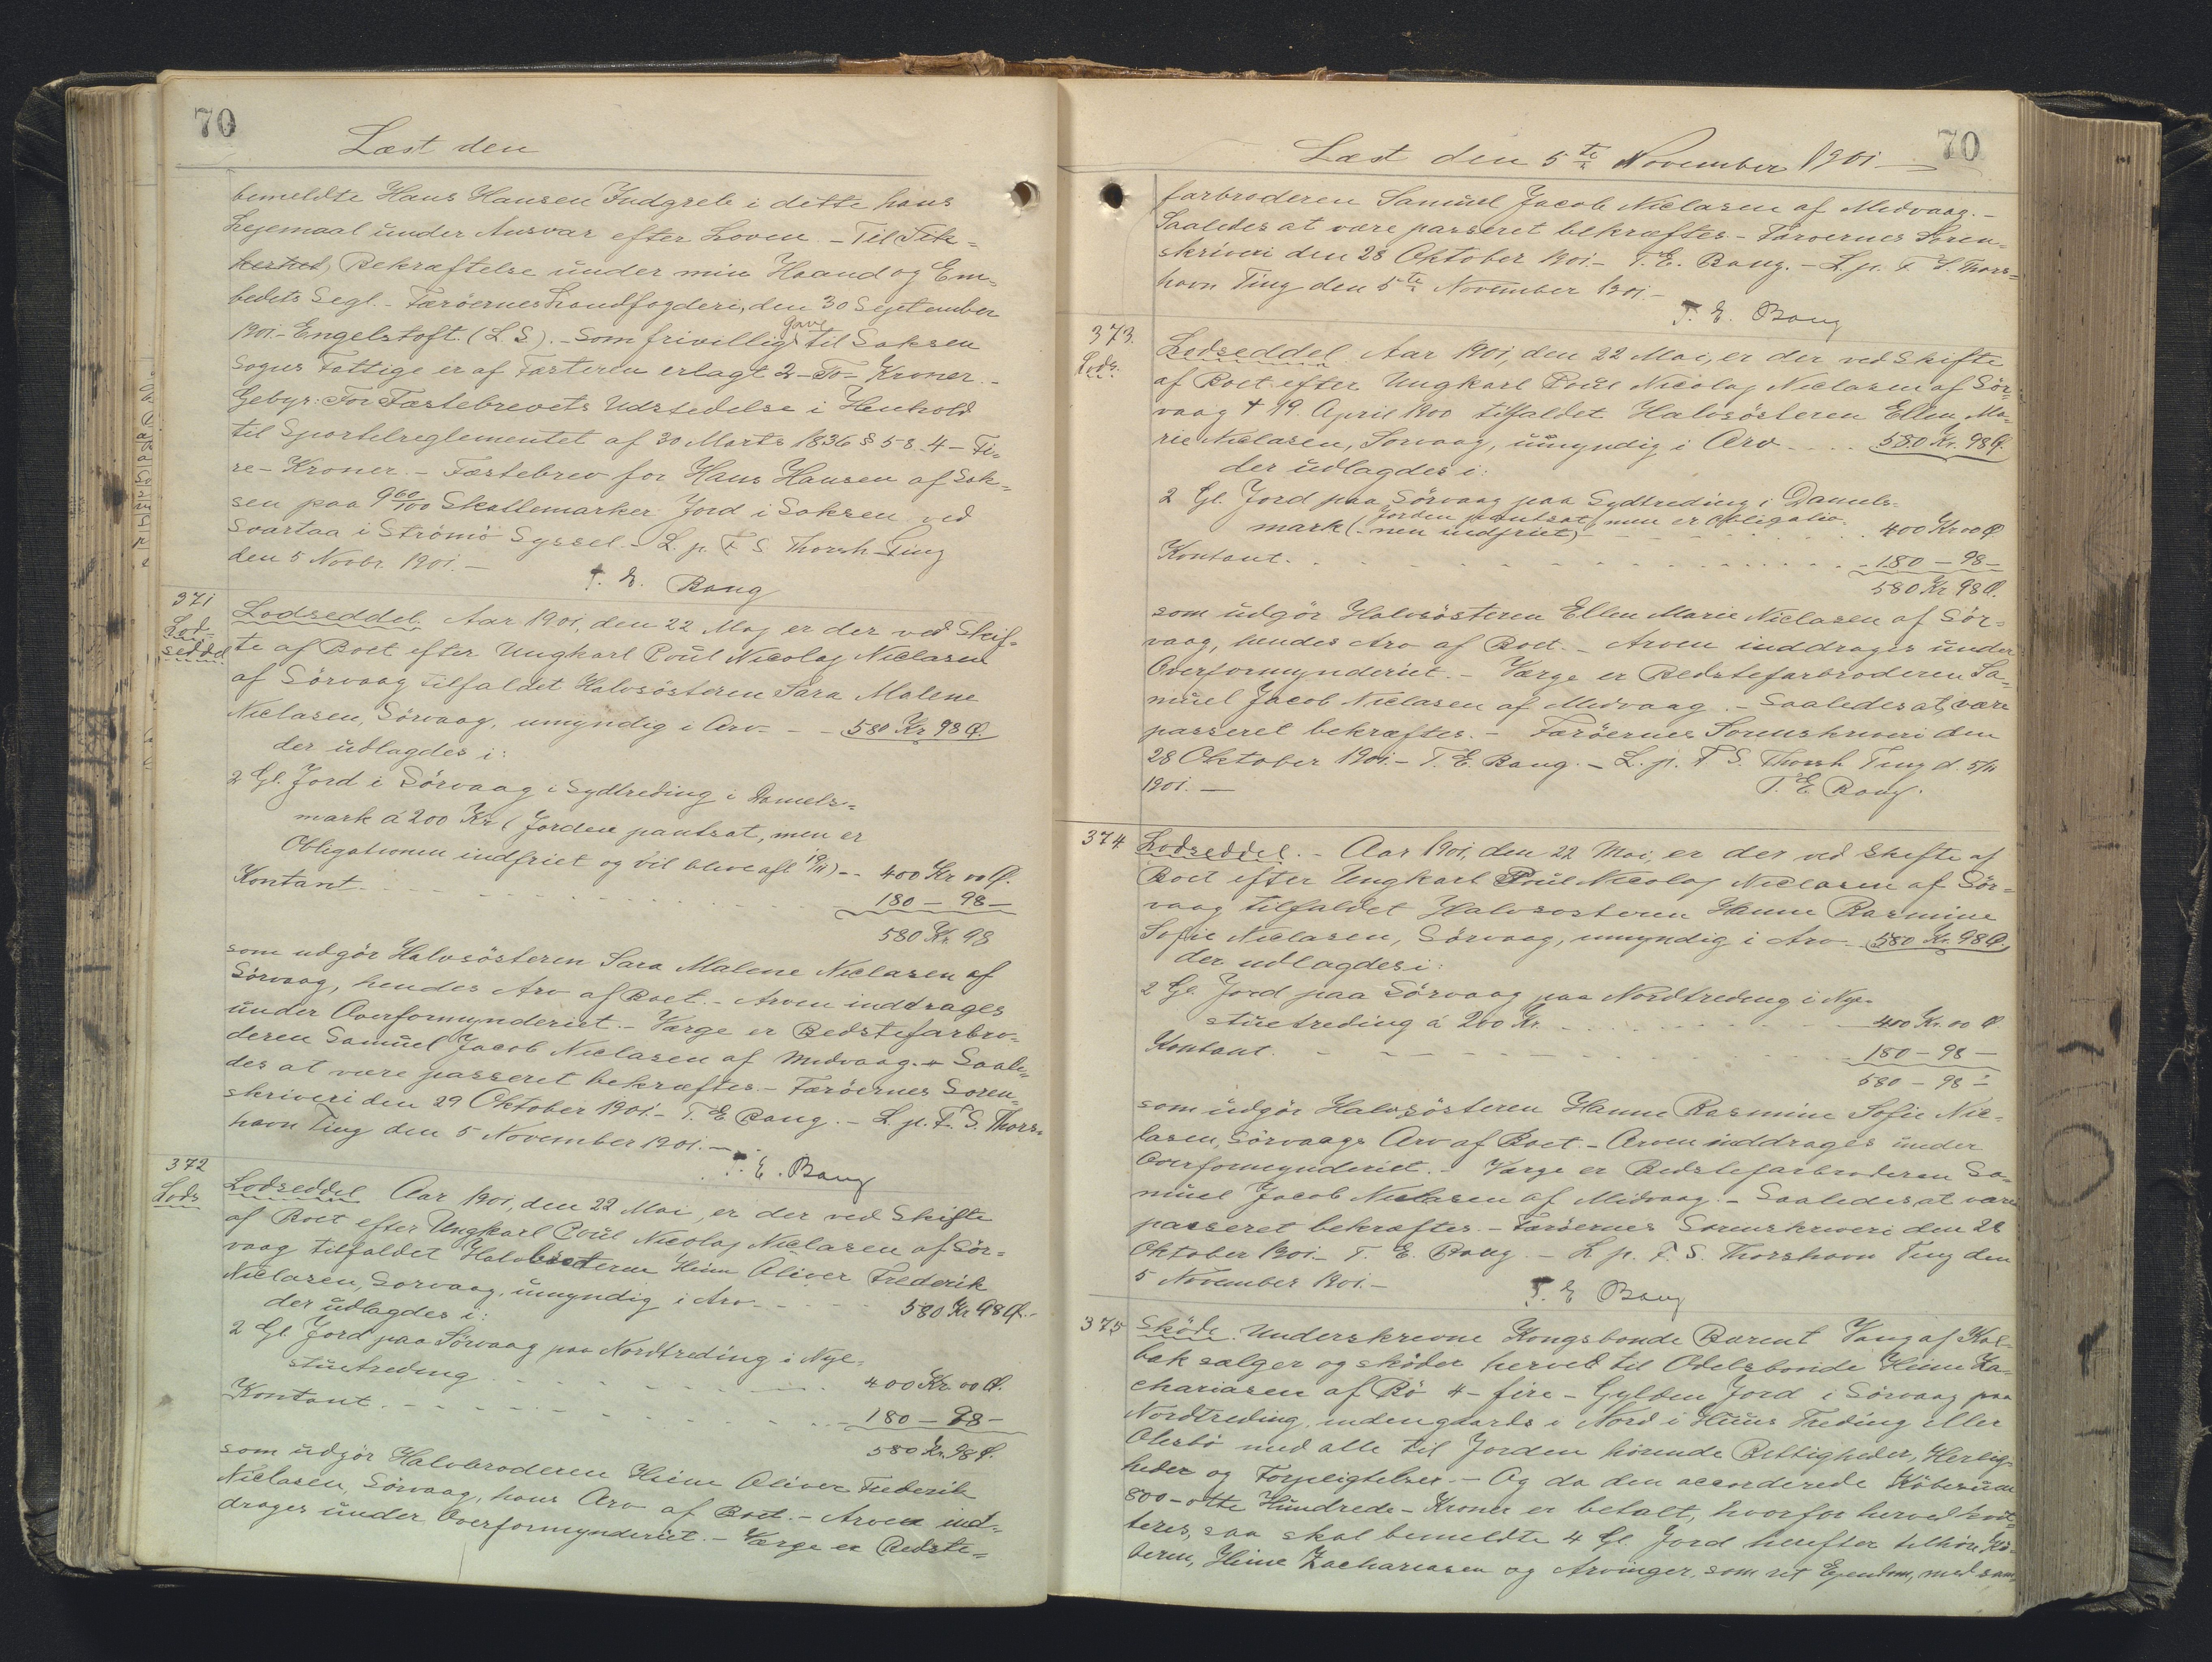 70
Læst den
bemeldte Hans Hansen Indgreb i dette hans
Lejemaal under Ansvar efter Loven. - Til Sik=
kerhed, Bekræftelse under min Haand og Em=
bedets Segl. - Færöernes Landfogderi, den 30 September
1901. - Engelstoft. (L.S). - Som frivillig Gave til Saksen
Sogns Fattige er af Fæsteren erlagt 2 - To - Kroner. -
Gebyr: For Fæstebrevets Udstedelse i Henhold
til Sportelreglementet af 30 Marts 1836 § 58. 4 - Fi=
re - Kroner. - Fæstebrev for Hans Hansen af Sak=
sen paa 9 60/100 Skattemarker Jord i Saksen ved
Svartaa i Strömö Syssel. - L. p. F. S. Thorsh. Ting
den 5 Novbr. 1901. -
T. E. Bang
371
Lod=
seddel
Lodseddel. Aar 1901, den 22 Maj er der ved Skif=
te af Boet efter Ungkarl Poul Nicolaj Niclasen
af Sörvaag tilfaldet Halvsösteren Sara Malene
Niclasen, Sörvaag, umyndig i Arv - - 580 Kr 98 Ø.
der udlagdes i:
2 Gl. Jord i Sörvaag i Sydtreding i Daniels=
mark á 200 Kr (Jorden pantsat, men er
Obligationen indfriet og vil blive afl. 19/11) - - 400 Kr 00 Ø.
Kontant - - - 180 - 98 -
580 Kr. 98
som udgör Halvsösteren Sara Malene Niclasen af
Sörvaag, hendes Arv af Boet. - Arven inddrages
under Overformynderiet. - Værge er Bedstefarbro=
deren Samuel Jacob Niclasen af Midvaag. - Saale=
des at være passeret bekræftes. - Færöernes Soren=
skriveri den 29 Oktober 1901. - T. E. Bang. - L. p. F. S. Thors=
havn Ting den 5 November 1901. -
T. E. Bang
372
Lods
Lodseddel Aar 1901, den 22 Mai, er der ved Skifte
af Boet efter Ungkarl Poul Nicolaj Niclasen af Sör=
vaag tilfaldet Heine Oliver Frederik
Niclasen, Sorvaag, umyndig i Arv - - - 580 Kr 98 Ø. -
der udlagdes i:
2 Gl. Jord paa Sörvaag paa Nordtreding i Nye=
stuetreding - - - 400 Kr. 00 Ø.
Kontant. - - - 180 - 98 -
580 Kr. 98 Ø.
som udgör Halvbroderen Heine Oliver Frederik
Niclasen, Sörvaag, hans Arv af Boet. - Arven ind=
drages under Overformynderiet. - Værge er Bedste=
70
Læst den 5te November 1901. -
farbroderen Samuel Jacob Niclasen af Midvaag. -
Saaledes at være passeret bekræftes. - Færoernes Soren=
skriveri den 28 Oktober 1901. - T. E. Bang. - L. p. F. S. Thors=
havn Ting den 5te November 1901. -
T. E. Bang
373.
Lods.
Lodseddel. Aar 1901, den 22 Mai, er der ved Skifte
af Boet efter Ungkarl Poul Nicolaj Niclasen af Sör=
vaag † 19. April 1900 tilfaldet Halvsösteren Ellen Ma=
rie Niclasen, Sorvaag, umyndig i Arv - - - 580 Kr. 98 Ø.
der udlagdes i:
2 Gl. Jord paa Sörvaag paa Sydtreding i Daniels=
mark (Jorden pantsat, men er Obligatio=
nen indfriet) - - - 400 Kr 00 Ø
Kontant. - - - 180 - 98 -
580 Kr 98 Ø.
som udgör Halvsösteren Ellen Marie Niclasen af Sör=
vaag, hendes Arv af Boet. - Arven inddrages under
Overformynderiet. - Værge er Bedstefarbroderen Sa=
muel Jacob Niclasen af Midvaag. - Saaledes at være
passeret bekræftes. - Færöernes Sorenskriveri den
28 Oktober 1901. - T. E. Bang. - L. p. F. S. Thorsh Ting d. 5/11
1901. -
T. E. Bang.
374
Lodseddel. - Aar 1901, den 22 Mai, er der ved Skifte af
Boet efter Ungkarl Poul Nicolaj Niclasen af Sör=
vaag tilfaldet Halvsosteren Hanne Rasmine
Sofie Niclasen, Sörvaag, umyndig i Arv - 580 Kr. 98 Ø.
der udlagdes i:
2 Gl. Jord paa Sörvaag paa Nordtreding i Nye=
stuetreding á 200 Kr. - - - 400 Kr. 00 Ø
Kontant. - - - 180 - 98 -
580 - 98 -
som udgör Halvsösteren Hanne Rasmine Sofie Nic=
lasen, Sörvaags Arv af Boet. - Arven inddrages under
Overformynderiet. - Værge er Bedstefarbroderen Sa=
muel Jacob Niclasen af Midvaag. - Saaledes at være
passeret bekræftes. - Færöernes Sorenskriveri den 28
Oktober 1901. - T. E. Bang. - L. p. F. S. Thorshavn Ting den
5 November 1901. -
T. E Bang
375
Sköde. Underskrevne Kongsbonde Barent Vang af Kal=
bak sælger og sköder herved til Odelsbonde Heine Za=
chariasen af Bö 4 - fire - Gylden Jord i Sörvaag paa
Nordtreding, indengaards i Nord i Huus Treding eller
Olesbö med alle til Jorden hörende Rettigheder, Herlig=
heder og Forpligtelser. - Og da den accorderede Köbesum
800 - otte Hundrede - Kroner er betalt, hvorfor herved kvit=
teres, saa skal bemeldte 4 Gl. Jord herefter tilhöre Kö=
beren, Heine Zachariasen og Arvinger, som ret Ejendom, med sam=